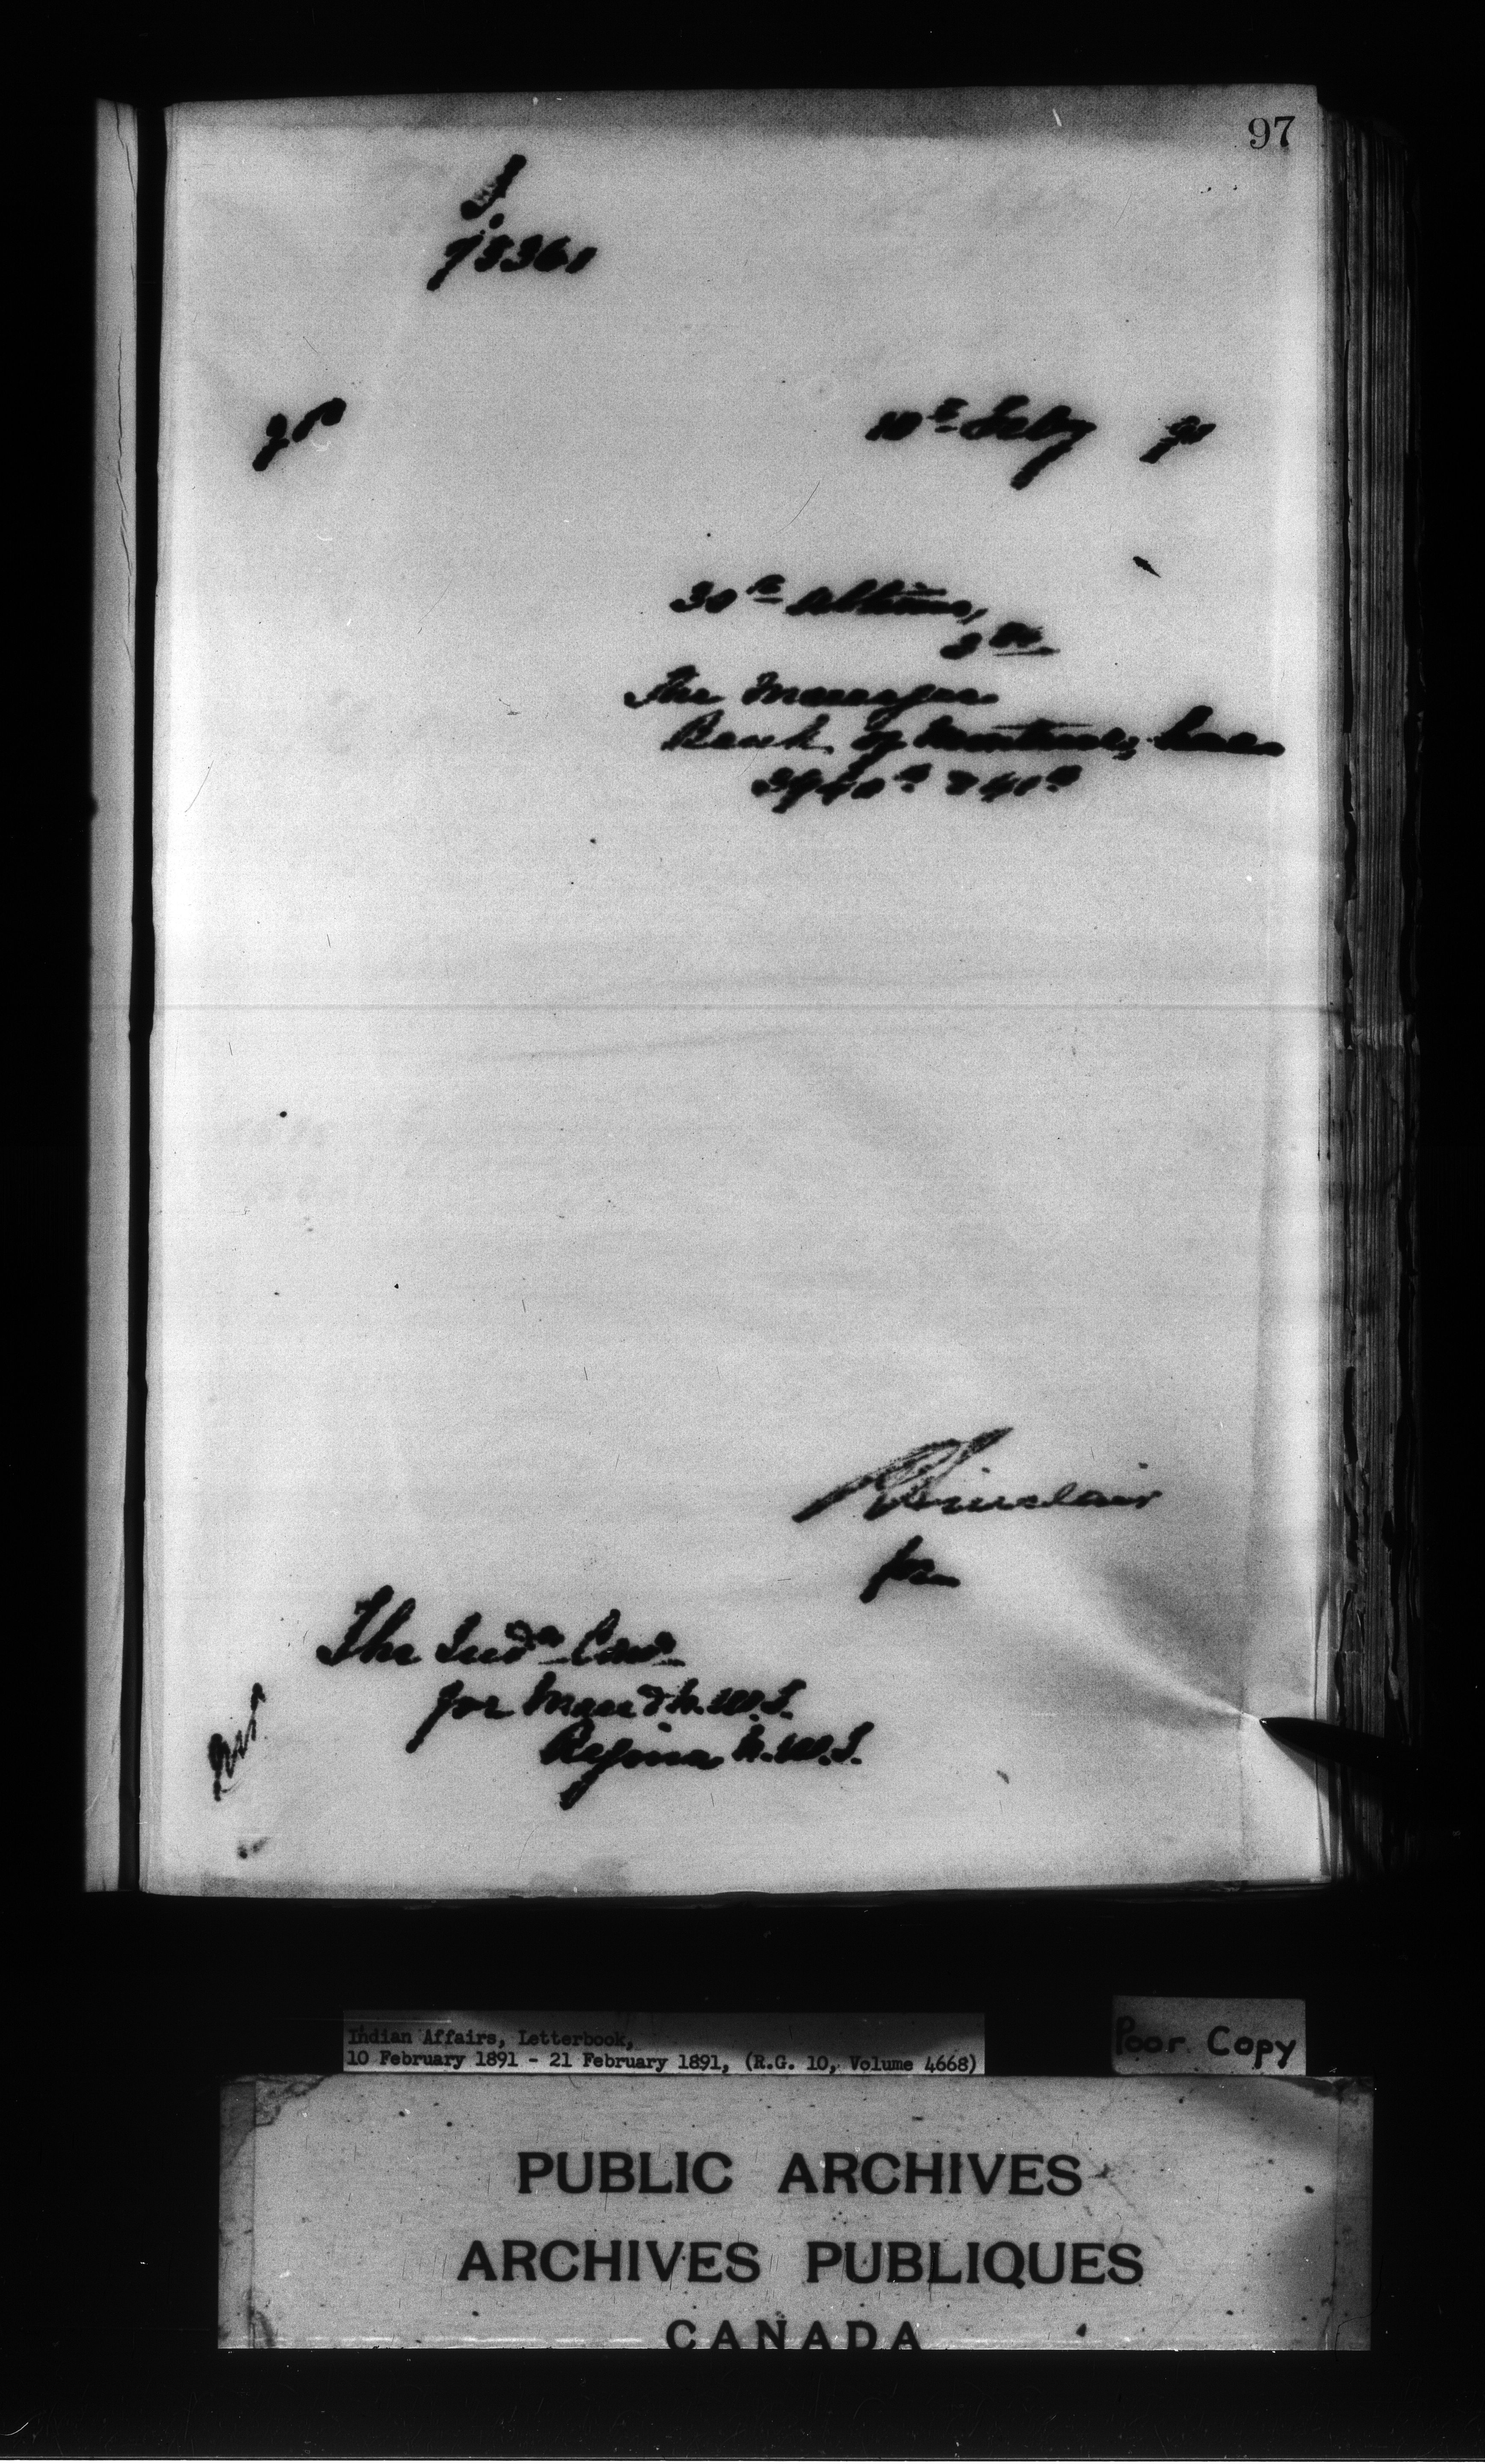 97
73361
10th Feby 91
30th Ultimo,
The Manager
Bank of Montreal,
The Indn Comr
for Man & N.W.T.
Regina N.W.T.
Sinclair
for
Indian Affairs, Letterbook,
10 February 1891 - 21 February 1891, (R.G. 10, Volume 4668)
Poor Copy
PUBLIC ARCHIVES
ARCHIVES PUBLIQUES
CANADA